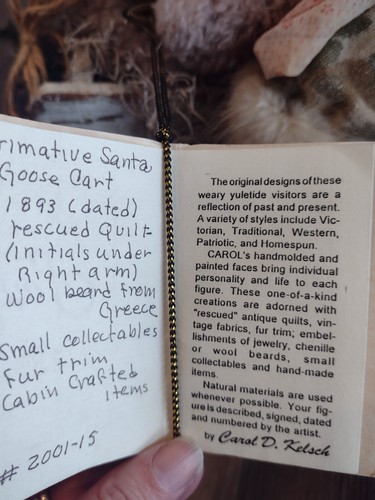 rimative Santa
Goose Cart
1893 (dated)
rescued Quilt
(Initials under
Right arm)
Wool beard from
Greece
Small collectables
Fur trim
Cabin Crafted
items
# 2001-15
The original designs of these
weary yuletide visitors are a
reflection of past and present.
A variety of styles include Vic-
torian, Traditional, Western,
Patriotic, and Homespun.
CAROL's handmolded and
painted faces bring individual
personality and life to each
figure. These one-of-a-kind
creations are adorned with
"rescued" antique quilts, vin-
tage fabrics, fur trim; embel-
lishments of jewelry, chenille
or wool beards, small
collectables and hand-made
items.
Natural materials are used
whenever possible. Your fig-
ure is described, signed, dated
and numbered by the artist.
by Carol D. Kelsch